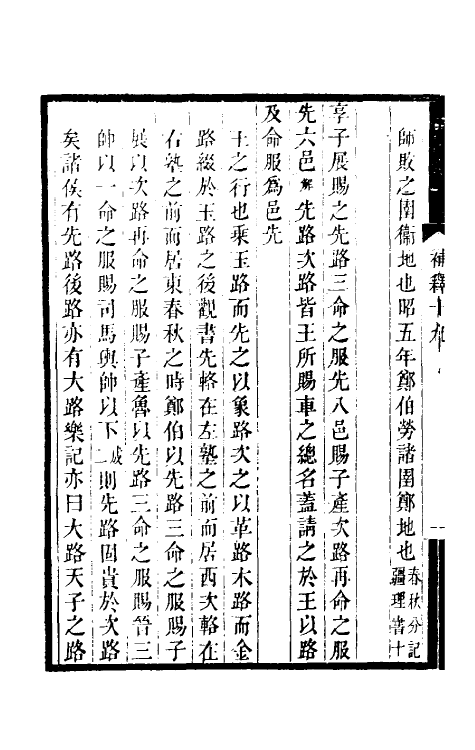 補釋十九
師敗之圉衞地也昭五年鄭伯勞諸圉鄭地也春秋分記疆理書十
享子展賜之先路三命之服先八邑賜子產次路再命之服
先六邑解先路次路皆王所賜車之總名蓋請之於王以路
及命服爲邑先
王之行也乘玉路而先之以象路次之以革路木路而金
路綴於玉路之後觀書先輅在左塾之前而居西次輅在
右塾之前而居東春秋之時鄭伯以先路三命之服賜子
展以次路再命之服賜子產魯以先路三命之服賜晉三
帥以一命之服賜司馬輿帥以下 則先路固貴於次路
矣諸侯有先路後路亦有大路樂記亦曰大路天子之路